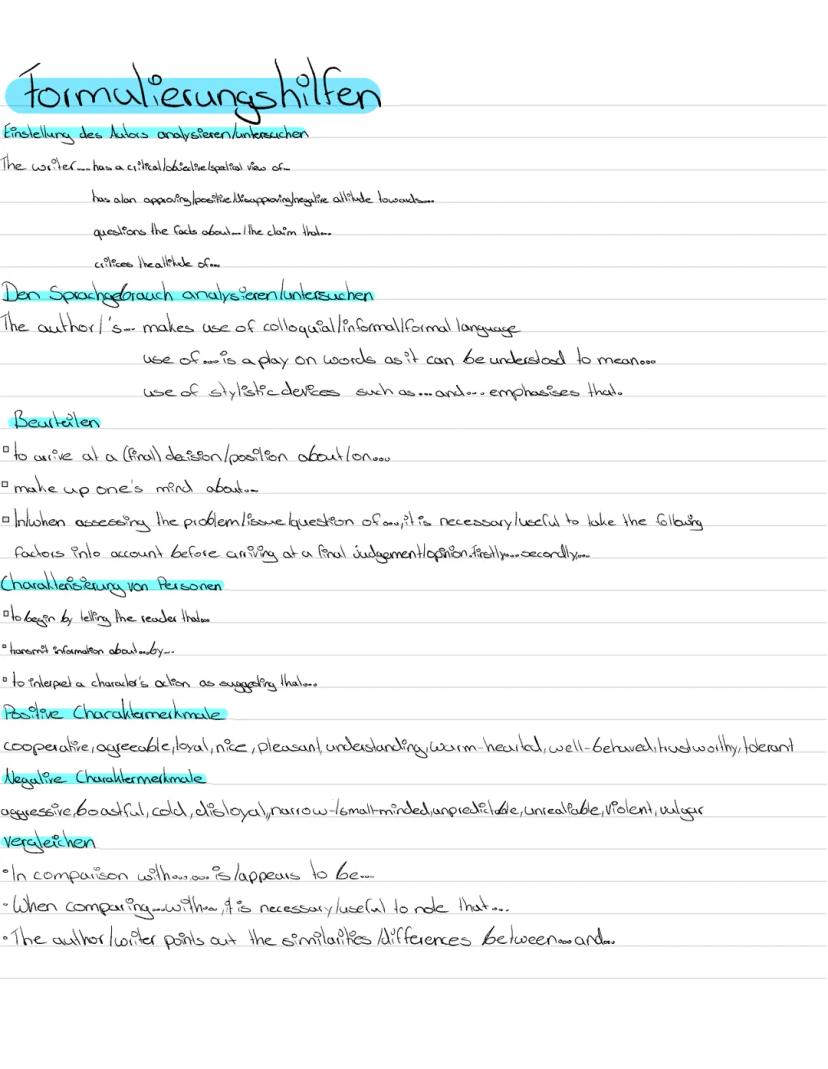 Formulierungshilfen
Einstellung des Autors analysieren/untersuchen
The writer... has a critical/objective/spetial view of...
has a/an approving/positive/disapproving/negative attitude towards...
questions the facts about.../the claim that...
critices the attitude of...
Den Sprachgebrauch analysieren/untersuchen
The author/'s... makes use of colloquial/informal/formal language
use of... is a play on words as it can be understood to mean...
use of stylistic devices such as... and... emphasises that.
Beurteilen
▫to arrive at a (final) decision/position about/on...
▫make up one's mind about...
▫In/when assessing the problem/issue/question of..., it is necessary/useful to take the following
factors into account before arriving at a final judgement/opinion. firstly... secondly...
Charakterisierung von Personen
▫to begin by telling the reader that...
▫transmit information about... by...
▫to interpret a character's action as suggesting that...
Positive Charaktermerkmale
cooperative, agreeable, loyal, nice, pleasant, understanding, warm-hearted, well-behaved, trustworthy, tolerant
Negative Charaktermerkmale
aggressive, boastful, cold, disloyal, narrow-/small-minded, unpredictable, unrealiable, violent, vulgar
vergleichen
•In comparison with... ... is/appears to be...
•When comparing... with..., it is necessary/useful to note that...
•The author/writer points out the similarities/differences between... and...